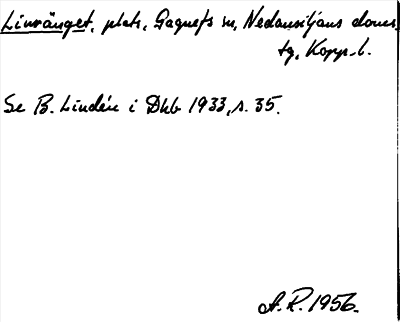 Linränget, plats, Gagnefs sn, Nedansiljans doms.
tg, Kopp. l.
Se B. Lindén i Dhb 1933, s. 35.
A.R. 1956.